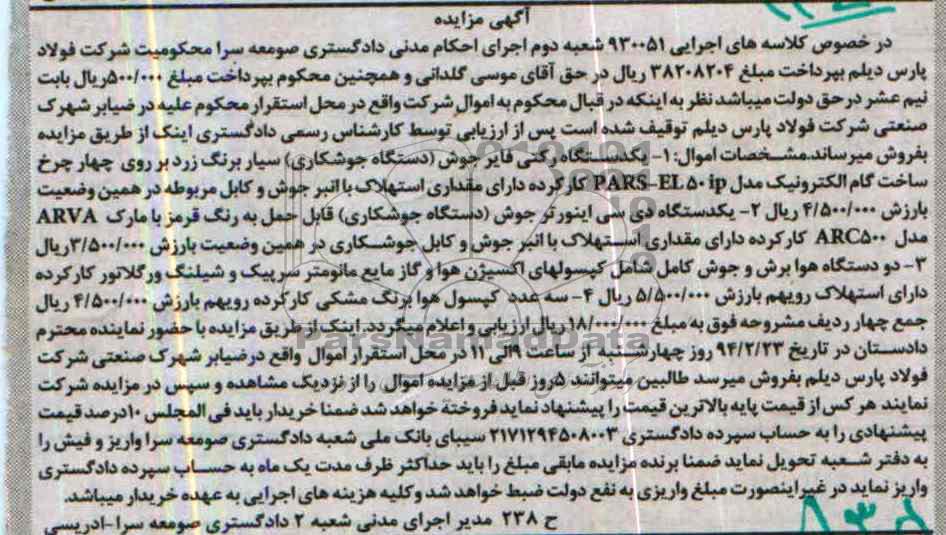 آگهی مزایده
در خصوص کلاسه های اجرایی ۹۳۰۰۵۱ شعبه دوم اجرای احکام مدنی دادگستری صومعه سرا محکومیت شرکت فولاد
پارس دیلم بپرداخت مبلغ ۳۸۲۰۸۲۰۴ ریال در حق آقای موسی گلدانی و همچنین محکوم بپرداخت مبلغ ۵۰۰/۰۰۰ریال بابت
نیم عشر در حق دولت میباشد نظر به اینکه در قبال محکوم به اموال شرکت واقع در محل استقرار محکوم علیه در ضیابر شهرک
صنعتی شرکت فولاد پارس دیلم توقیف شده است پس از ارزیابی توسط کارشناس رسمی دادگستری اینک از طریق مزایده
بفروش میرساند.مشخصات اموال: ۱- یکدستگاه رکتی فایر جوش (دستگاه جوشکاری) سیار برنگ زرد بر روی چهار چرخ
ساخت گام الکترونیک مدل PARS-EL۵۰ip کارکرده دارای مقداری استهلاک با انبر جوش و کابل مربوطه در همین وضعیت
بارزش ۴/۵۰۰/۰۰۰ ریال ۲- یکدستگاه دی سی اینورتر جوش (دستگاه جوشکاری) قابل حمل به رنگ قرمز با مارک ARVA
مدل ARC۵۰۰ کارکرده دارای مقداری استهلاک با انبر جوش و کابل جوشکاری در همین وضعیت بارزش ۳/۵۰۰/۰۰۰ریال
۳- دو دستگاه هوا برش و جوش کامل شامل کپسولهای اکسیژن هوا و گاز مایع مانومتر سرپیک و شیلنگ ورگلاتور کارکرده
دارای استهلاک رویهم بارزش ۵/۵۰۰/۰۰۰ ریال ۴- سه عدد کپسول هوا برنگ مشکی کارکرده رویهم بارزش ۴/۵۰۰/۰۰۰ ریال
جمع چهار ردیف مشروحه فوق به مبلغ ۱۸/۰۰۰/۰۰۰ ریال ارزیابی و اعلام میگردد.اینک از طریق مزایده با حضور نماینده محترم
دادستان در تاریخ ۹۴/۲/۲۳ روز چهارشنبه از ساعت ۹الی ۱۱ در محل استقرار اموال واقع درضیابر شهرک صنعتی شرکت
فولاد پارس دیلم بفروش میرسد طالبین میتوانند ۵روز قبل از مزایده اموال را از نزدیک مشاهده و سپس در مزایده شرکت
نمایند هر کس از قیمت پایه بالاترین قیمت را پیشنهاد نماید فروخته خواهد شد ضمنا خریدار باید فی المجلس ۱۰درصد قیمت
پیشنهادی را به حساب سپرده دادگستری ۲۱۷۱۲۹۴۵۰۸۰۰۳ سیبای بانک ملی شعبه دادگستری صومعه سرا واریز و فیش را
به دفتر شعبه تحویل نماید ضمنا برنده مزایده مابقی مبلغ را باید حداکثر ظرف مدت یک ماه به حساب سپرده دادگستری
واریز نماید در غیر اینصورت مبلغ واریزی به نفع دولت ضبط خواهد شد و کلیه هزینه های اجرایی به عهده خریدار میباشد.
ح ۲۳۸ مدیر اجرای مدنی شعبه ۲ دادگستری صومعه سرا-ادریسی
ParsNamadData